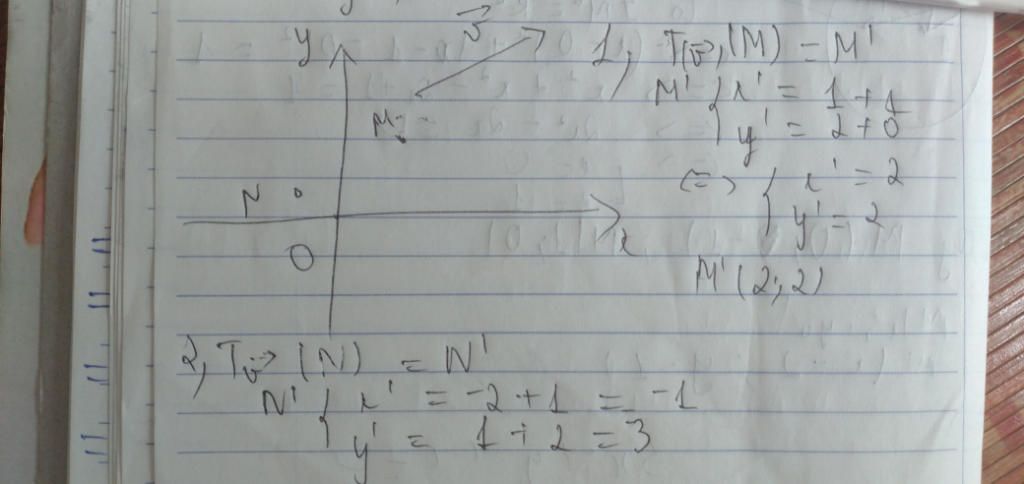 y
v⃗
M
N
O
x
1, T(v⃗) (M) = M'
M' { x' = 1 + 1
y' = 2 + 0
<=> { x' = 2
y' = 2
M' (2; 2)
2, Tv⃗ (N) = N'
N' { x' = -2 + 1 = -1
y' = 1 + 2 = 3